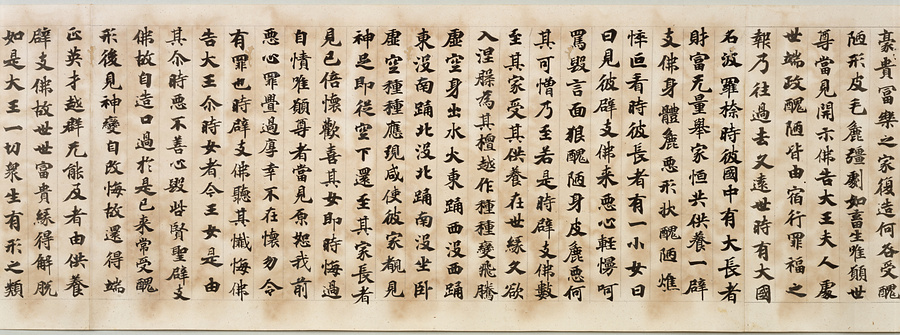 豪貴冨樂之家復造何各受
陋形皮毛麁彊劇如畜生唯願世
尊當見開示佛告大王夫人處
世端政醜陋皆由宿行罪福之
報乃往過去久遠世時有大國
名波羅捺時彼國中有大長者
財富无量舉家恒共供養一辟
支佛身體麁惡形狀醜陋憔
悴叵看時彼長者有一小女日
日見彼辟支佛来惡心輕慢呵
罵毀言面狠醜陋身皮麁惡何
其可憎乃至若是時辟支佛數
至其家受其供養在世緣久欲
入涅槃為其檀越作種種變飛騰
虛空身出水火東踊西没西踊
東没南踊北没北踊南没坐卧
虛空種種應現咸使彼家覩見
神足即從空下還至其家長者
見已倍懷歡喜其女即時悔過
自情唯願尊者當見原恕我前
惡心罪舋過厚幸不在懷勿令
有罪也時辟支佛聽其懺悔佛
告大王尒時女者今王女是由
其尒時惡不善心毀呰賢聖辟支
佛故自造口過於是已来常受醜
形後見神變自改悔故還得端
正英才越群无能及者由供養
辟支佛故世世富貴緣得解脫
如是大王一切衆生有形之類